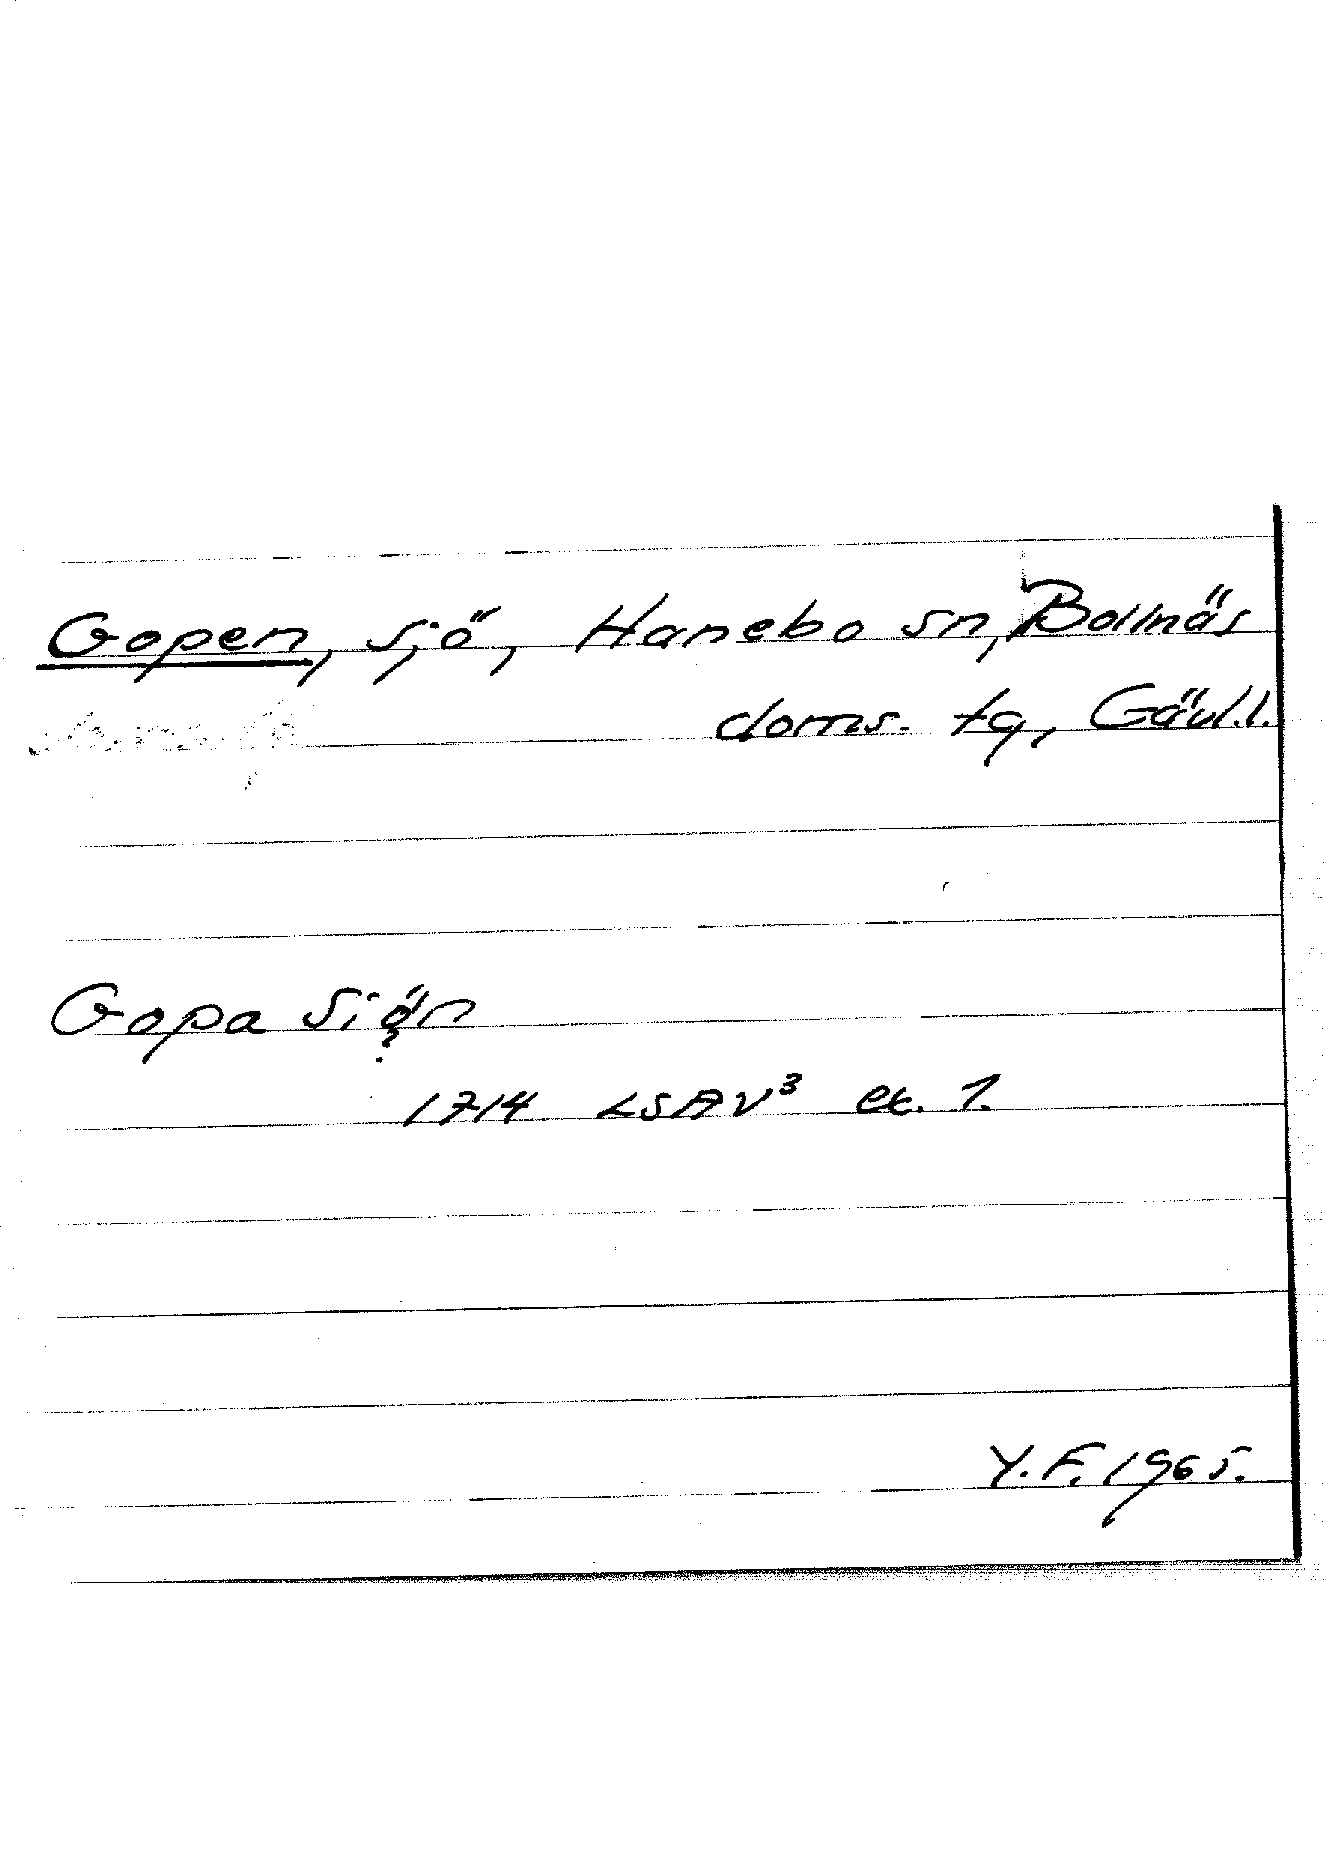 Gopen, sjö, Hanebo sn, Bollnäs
doms. tg, Gävl.l.
Gopa Siön
1714 LSA V³ ex. 1.
Y.F. 1965.